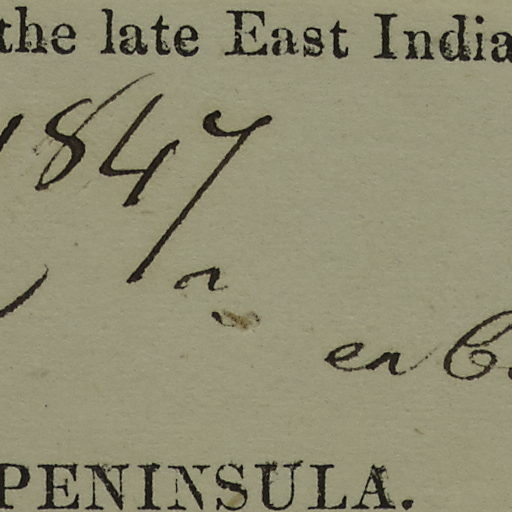 the late East India
1847
en
PENINSULA.